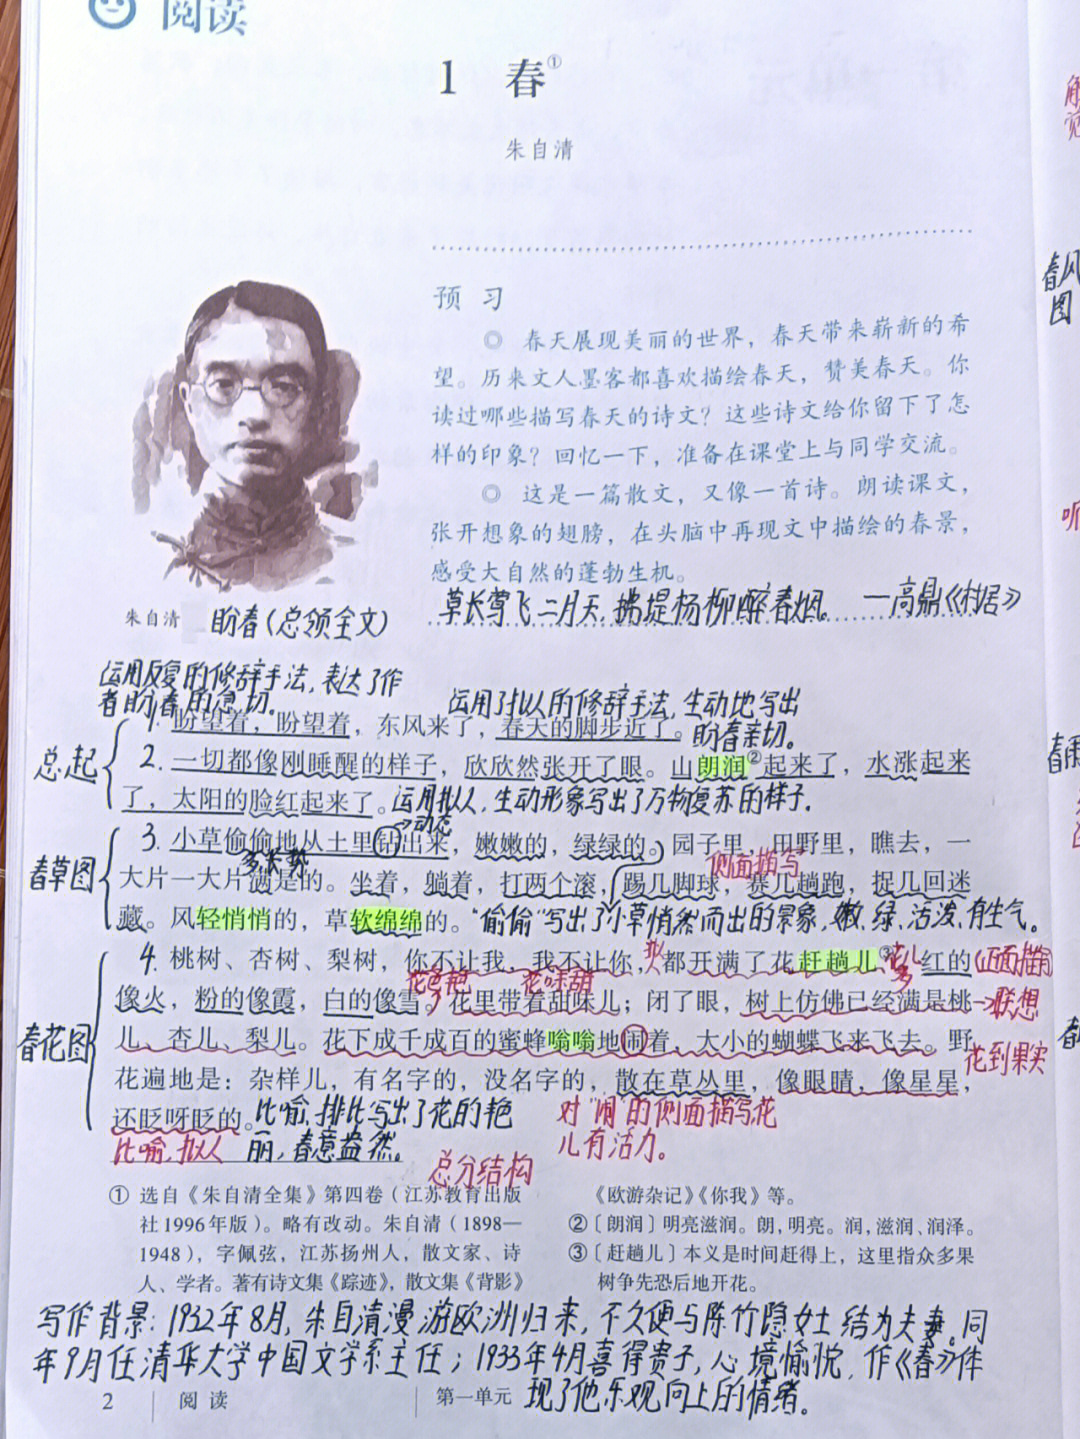 阅读
1 春①
朱自清
预 习
◎ 春天展现美丽的世界，春天带来崭新的希
望。历来文人墨客都喜欢描绘春天，赞美春天。你
读过哪些描写春天的诗文？这些诗文给你留下了怎
样的印象？回忆一下，准备在课堂上与同学交流。
◎ 这是一篇散文，又像一首诗。朗读课文，
张开想象的翅膀，在头脑中再现文中描绘的春景，
感受大自然的蓬勃生机。
草长莺飞二月天，拂堤杨柳醉春烟。 —高鼎《村居》
朱自清
盼春(总领全文)
运用反复的修辞手法，表达了作
者盼春的急切。
运用了拟人的修辞手法，生动地写出
盼春亲切。
总起
1. 盼望着，盼望着，东风来了，春天的脚步近了。
2. 一切都像刚睡醒的样子，欣欣然张开了眼。山朗润②起来了，水涨起来
了，太阳的脸红起来了。运用拟人，生动形象写出了万物复苏的样子.
→动态
春草图
3. 小草偷偷地从土里钻出来，嫩嫩的，绿绿的。园子里，田野里，瞧去，一
多，长势
侧面描写
大片一大片满是的。坐着，躺着，打两个滚，踢几脚球，赛几趟跑，捉几回迷
藏。风轻悄悄的，草软绵绵的。“偷偷”写出了小草悄然而出的景象，嫩、绿、活泼、有生气。
春花图
4. 桃树、杏树、梨树，你不让我，我不让你，都开满了花赶趟儿③。红的
拟人
花儿多
(正面描写)
花色艳
花味甜
像火，粉的像霞，白的像雪。花里带着甜味儿；闭了眼，树上仿佛已经满是桃
→联想
儿、杏儿、梨儿。花下成千成百的蜜蜂嗡嗡地闹着，大小的蝴蝶飞来飞去。野
花到果实
花遍地是：杂样儿，有名字的，没名字的，散在草丛里，像眼睛，像星星，
还眨呀眨的。比喻，排比写出了花的艳
丽，春意盎然。
比喻，拟人
对“闹”的侧面描写花
儿有活力。
总分结构
① 选自《朱自清全集》第四卷（江苏教育出版
社1996年版）。略有改动。朱自清（1898—
1948），字佩弦，江苏扬州人，散文家、诗
人、学者。著有诗文集《踪迹》，散文集《背影》
《欧游杂记》《你我》等。
②〔朗润〕明亮滋润。朗，明亮。润，滋润、润泽。
③〔赶趟儿〕本义是时间赶得上，这里指众多果
树争先恐后地开花。
写作背景：1932年8月，朱自清漫游欧洲归来，不久便与陈竹隐女士结为夫妻。同
年9月任清华大学中国文学系主任；1933年4月喜得贵子，心境愉悦，作《春》体
现了他乐观向上的情绪。
2 阅读 第一单元
春风
图